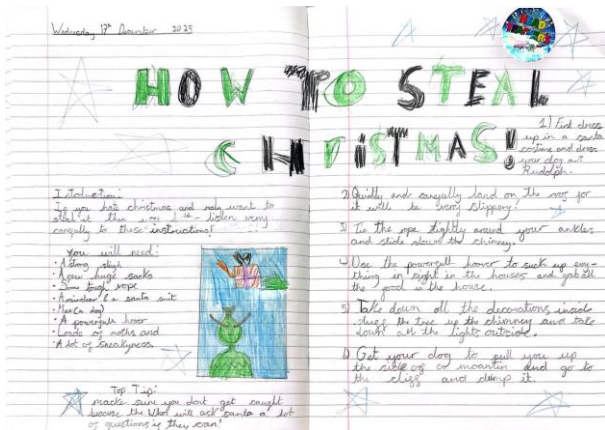 Wednesday 17th December 2025
HEAD
HOW TO STEAL
CHRiSTMAS!
Introduction:
If you hate christmas and realy want to
steal it then listen very
carefully to these instructions!
You will need:
• A strong sleigh
• A few huge sacks
• Some tough rope
• a santa suit
• Max(a dog)
• A powerfull hover
• Loads of moths and
• A lot of sneakyness.
Top Tip:
macke sure you dont get caught
because the Whos will ask santa a lot
of questions if they can!
1) First dress
up in a santa
costume and dress
your dog as
Rudolph.
2) Quickly and carefully land on the roof for
it will be very slippery!
3) Tie the rope tightly around your ankles
and slide down the chimney.
4) Use the powerfull hoover to suck up evry-
thing in sight in the houses and gob all
the food in the house.
5) Take down all the decorations inside
the tree up the chimney and take
down all the lights outside.
6) Get your dog to pull you up
the side of a moantin and go to
the cliff and dump it.